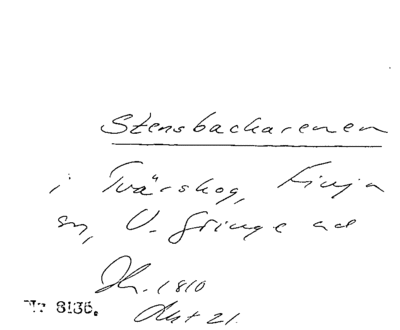 Stensbackarenen
i Tvärskog, Finja
sn, V. Göinge hd
Dk. 1810
Akt 21.
Nr 8136.